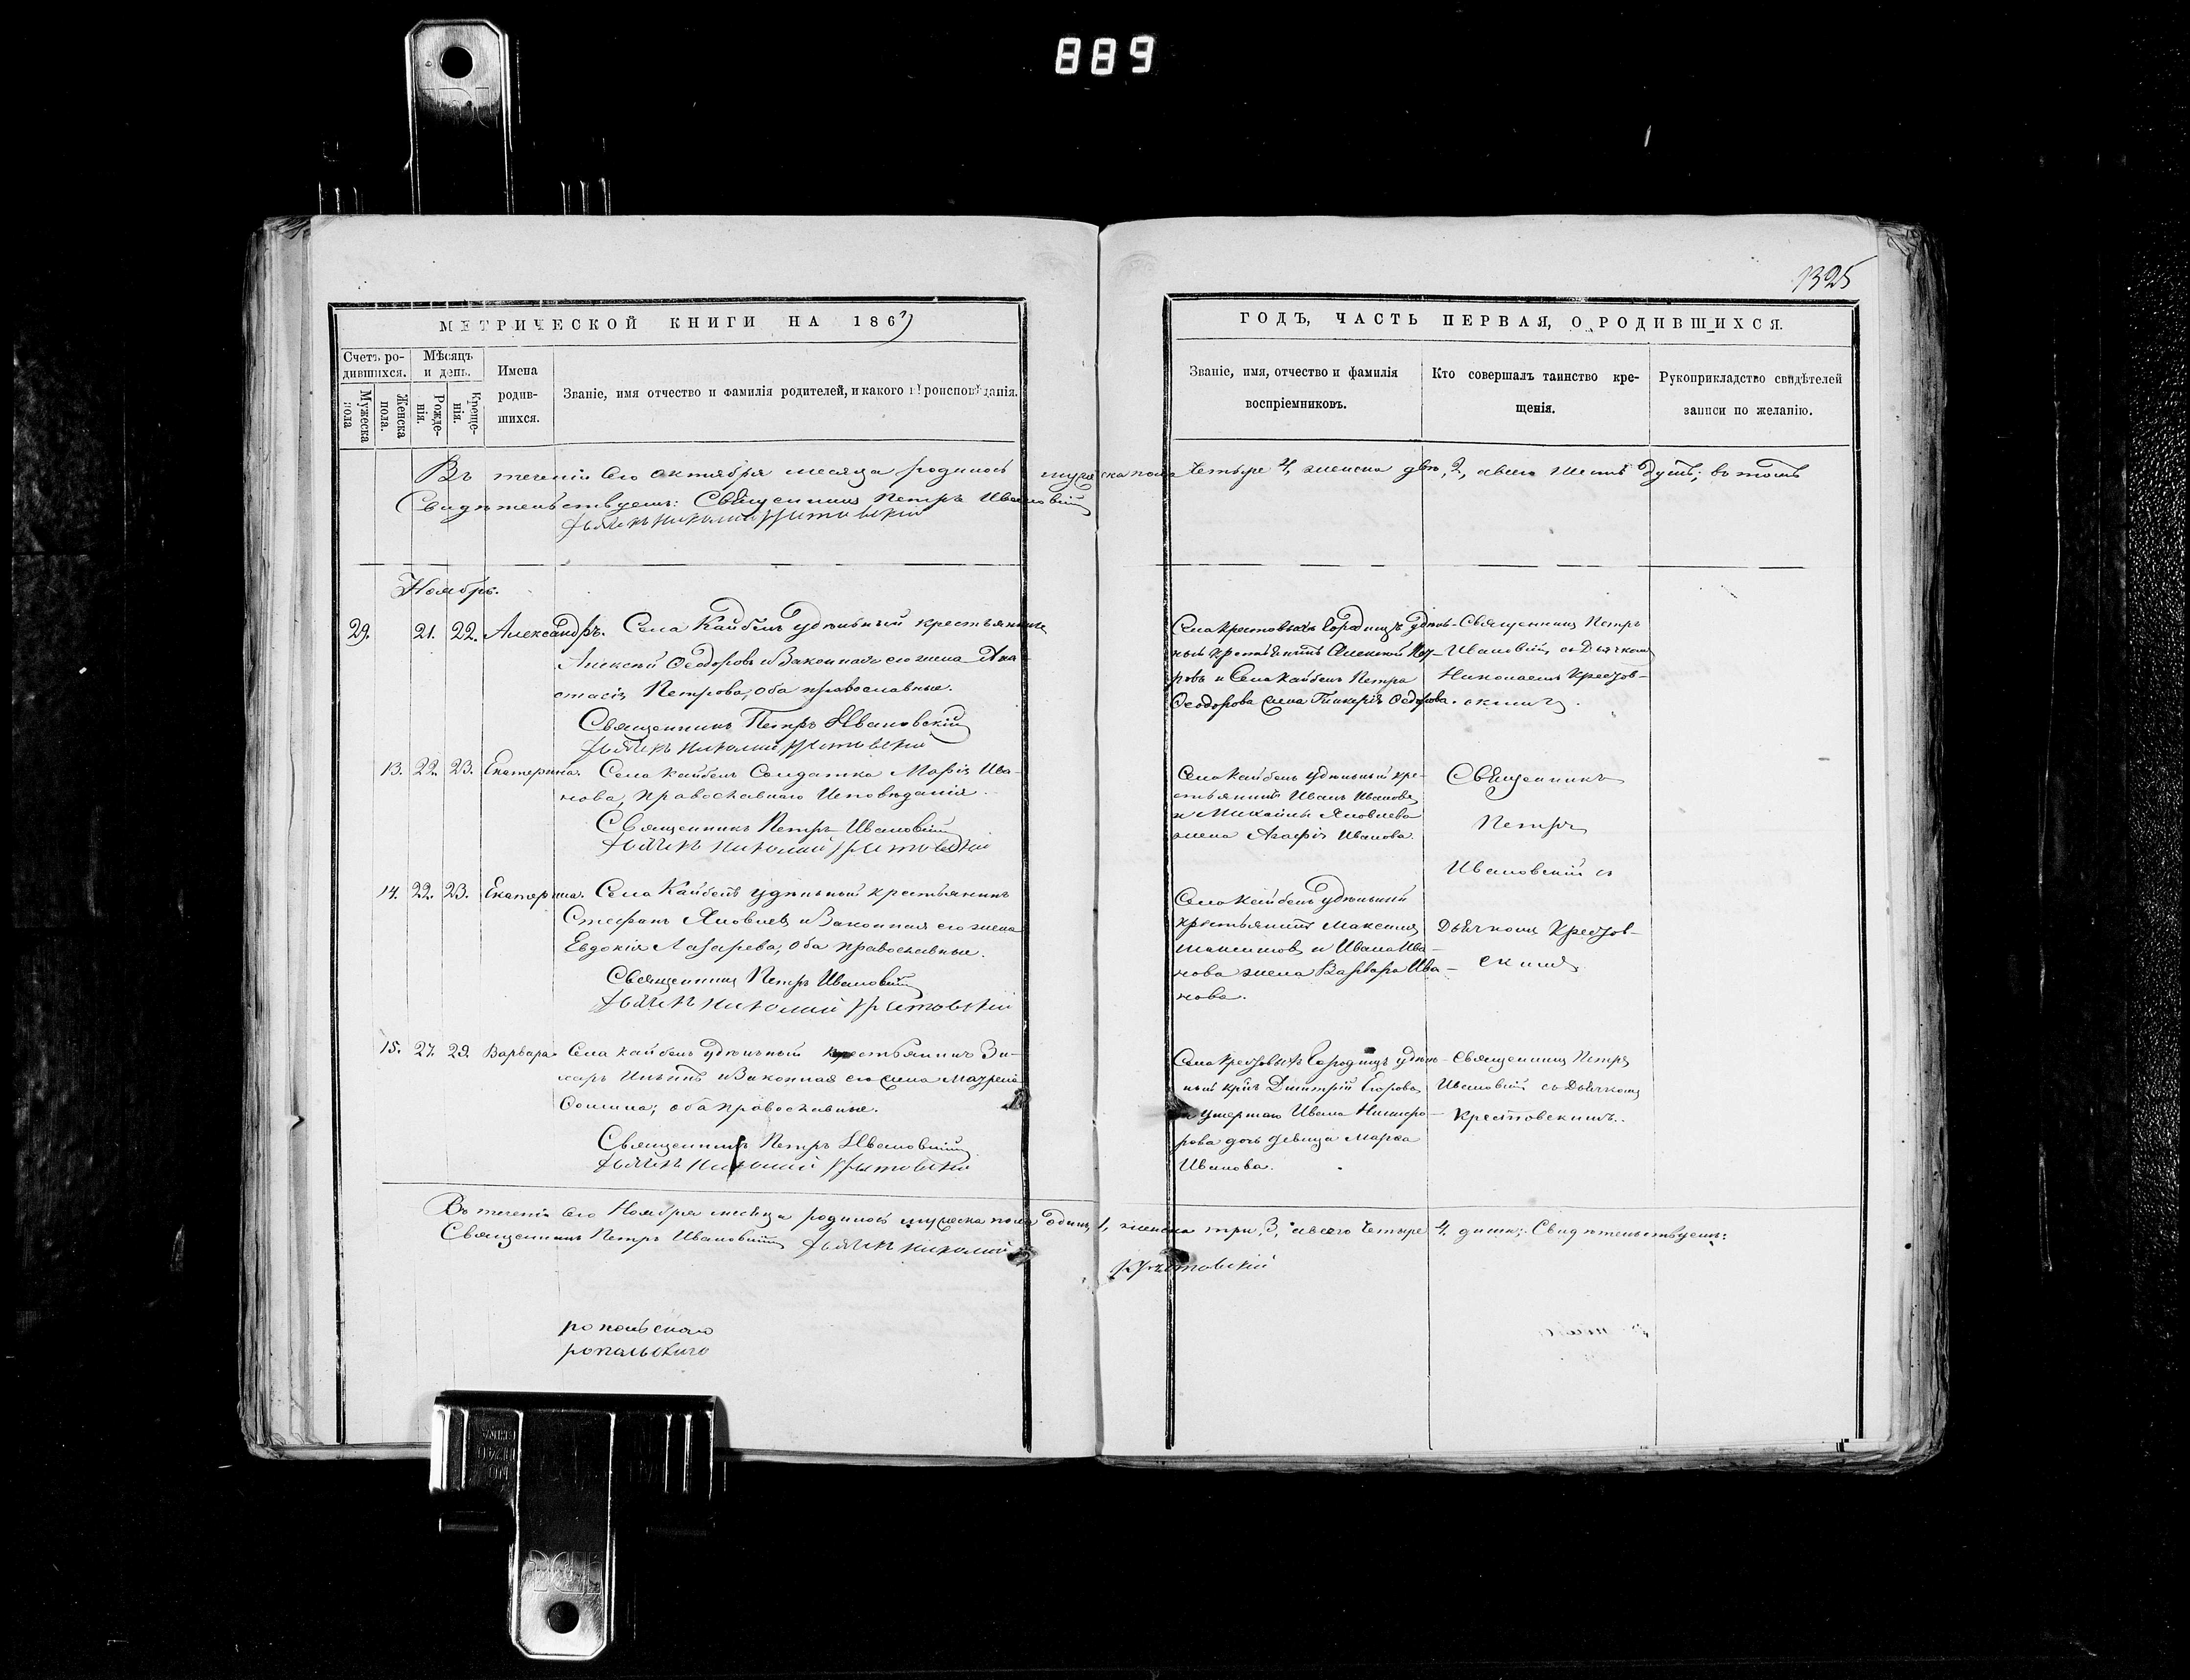 889
1325
МЕТРИЧЕСКОЙ КНИГИ НА 1867
Счетъ ро-
дившихся.
Мужеска
пола
Женска
пола.
Мѣсяцъ
и день.
Рожде-
нія.
Креще-
нія.
Имена
родив-
шихся.
Званіе, имя отчество и фамилія родителей, и какого вѣроисповѣданія.
ГОДЪ, ЧАСТЬ ПЕРВАЯ, О РОДИВШИХСЯ.
Званіе, имя, отчество и фамилія
воспріемниковъ.
Кто совершалъ таинство кре-
щенія.
Рукоприкладство свидѣтелей
записи по желанію.
Въ теченіи сего октября месяца родилось мужеска пола четыре 4, женска двѣ, 2, а всего шесть душъ; въ томъ
Свидѣтельствуемъ: Священникъ Петръ Ивановскій
Дьячекъ Николай Крестовскій
Ноябрь.
29. 21. 22. Александръ. Села Кайбелъ удѣльный крестьянинъ
Алексѣй Ѳеодоровъ и Законная его жена Ана
стасія Петрова, оба православные.
Священникъ Петръ Ивановскій
Дьячекъ Николай Крестовскій
Села Крестовыхъ Городищъ удѣль-
ный крестьянинъ Алексѣй
ровъ и Села Кайбелъ Петра
Ѳеодорова жена Гликерія Ѳедорова.
Священникъ Петръ
Ивановскій, съ Дьячкомъ
Николаемъ Крестов-
скимъ.
13. 22. 23. Екатерина. Села Кайбелъ Солдатка Марія Ива-
нова, православнаго Исповѣданія.
Священникъ Петръ Ивановскій
Дьячекъ Николай Крестовскій
Села Кайбелъ удѣльный кре-
стьянинъ Иванъ Ивановъ
и Михаила Яковлева
жена Агафія Иванова.
Священникъ
Петръ
Ивановскій съ
14. 22. 23. Екатерина. Села Кайбелъ удѣльный крестьянинъ
Стефанъ Яковлевъ и Законная его жена
Евдокія Лазарева, оба православные.
Священникъ Петръ Ивановскій
Дьячекъ Николай Крестовскій
Села Кайбелъ удѣльный
крестьянинъ Максимъ
Максимовъ и Ивана Ива-
нова жена Варвара Ива-
нова.
Дьячкомъ Крестов-
скимъ
15. 27. 29. Варвара. Села Кайбелъ удѣльный крестьянинъ За-
харъ Ильинъ и Законная его жена
Ѳомина; оба православные.
Священникъ Петръ Ивановскій
Дьячекъ Николай Крестовскій
Села Крестовыхъ Городищъ удѣль-
ный Димитрій Егоровъ
и умершаго Ивана
рова дочь дѣвица Марѳа
Иванова.
Священникъ Петръ
Ивановскій съ Дьячкомъ
Крестовскимъ.
Въ теченіи сего Ноября месяца родилось мужеска пола одинъ 1, женска три, 3, а всего четыре 4. души; Свидѣтельствуемъ:
Священникъ Петръ Ивановскій Дьячекъ Николай
Крестовскій